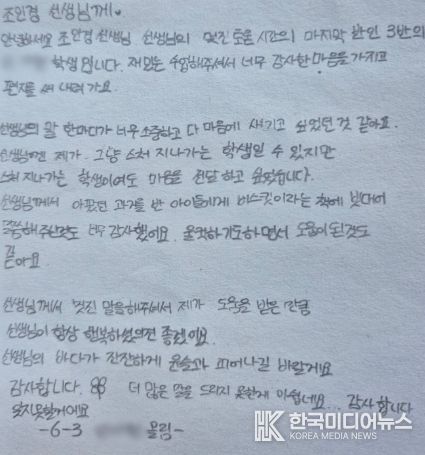 조인경 선생님께♥
안녕하세요 조인경 선생님 선생님의 멋진 도움 시간의 마지막 반인 3반의
학생 입니다. 재밌는 수업해주셔서 너무 감사한 마음을 가지고
편지를 써 내려 가요.
선생님의 말 한마디가 너무 소중하고 다 마음에 새기고 싶었던 것 같아요.
선생님껜 제가 그냥 스쳐 지나가는 학생일 수 있지만
스쳐 지나가는 학생이여도 마음을 전달 하고 싶었습니다.
선생님께서 아팠던 과거를 반 아이들에게 비스킷이라는 책에 빗대어
말씀해주신것도 너무 감사했어요. 울컥하기도하면서 도움이 된것도
같
아요
선생님께서 멋진 말을해주셔서 제가 도움을 받은 만큼
선생님이 항상 행복하셨으면 좋겠어요.
선생님의 바다가 잔잔하게 윤슬과 피어나길 바랄게요
감사합니다. 더 많은 말을 드리지 못한게 아쉽네요... 감사합니다
잊지못할거에요
-6-3 올림-
한국미디어뉴스
KOREA MEDIA NEWS